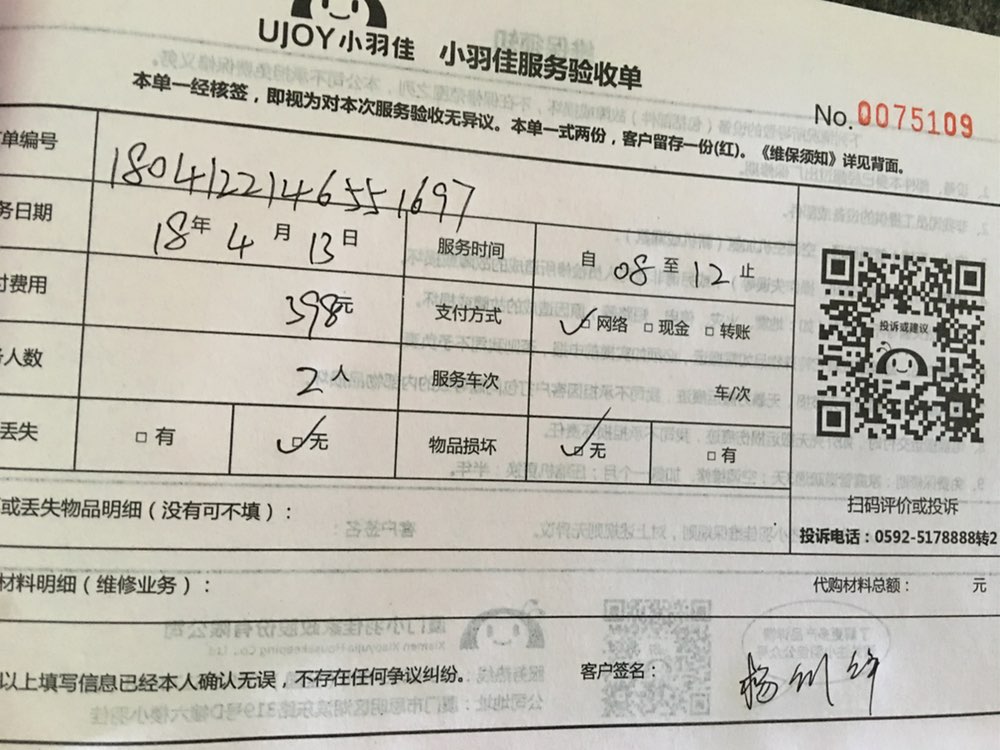 UJOY小羽佳 小羽佳服务验收单
本单一经核签，即视为对本次服务验收无异议。本单一式两份，客户留存一份(红)。《维保须知》详见背面。
No.0075109
单编号 1804122146551697
务日期 18年4月13日 服务时间 自08至12止
付费用 398元 支付方式 ✓□网络 □现金 □转账
人数 2人 服务车次 车/次
丢失 □有 ✓□无 物品损坏 ✓□无 □有
投诉或建议
扫码评价或投诉
投诉电话：0592-5178888转2
或丢失物品明细（没有可不填）：
材料明细（维修业务）： 代购材料总额： 元
以上填写信息已经本人确认无误，不存在任何争议纠纷。 客户签名：